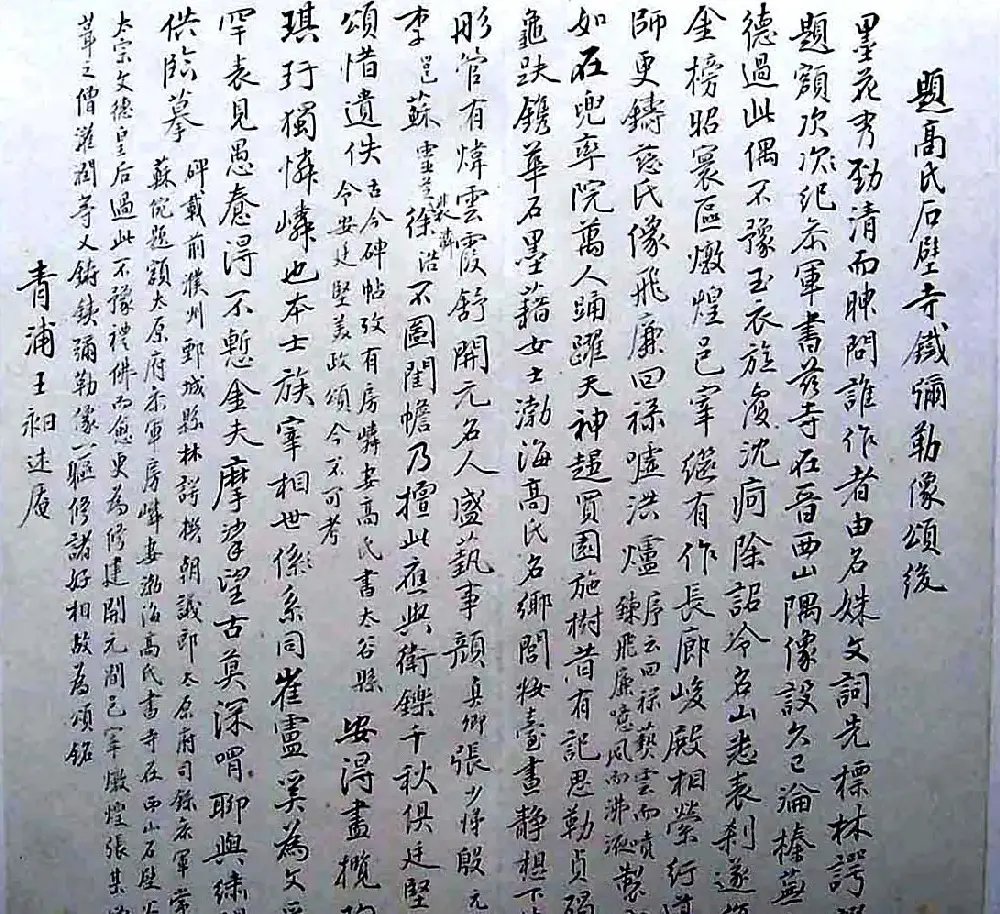 題高氏石壁寺鐵彌勒像頌後
墨花秀勁清而腴問誰作者由名姝文詞先標林諤
題額次次紀參軍書茲寺在晉西山隅像設久已淪榛蕪
德過此偶不豫玉衣旋復沈痾除詔冷名山悉表刹遂
金榜昭寰區燉煌邑宰繼有作長廊峻殿相縈紆
師更鑄慈氏像飛廉回祿噓洪爐序云回祿蓺雲而噴鍊飛廉噫風而沸液製
如在兜率院萬人踊躍天神趨買園施樹昔有記思勒貞
龜趺鐫華石墨藉女士渤海高氏名鄉閭妝臺晝靜想下
彤管有煒雲霞舒開元名人盛藝事顏真卿張少悌殷元
李邕蘇靈芝裴漼徐浩不圖閨幨乃擅此應與衛鑠千秋俱廷堅
頌惜遺佚古今碑帖攷有房嶙妻高氏書太谷縣令安廷堅美政頌今不可考安得盡攬
琪玗獨憐嶙也本士族宰相世係系同崔盧奚為文
罕表見愚惷得不慙金夫摩挲望古莫深喟聊與
供臨摹碑載前濮州鄄城縣林諤撰朝議郎太原府司錄參軍
蘇倪題額太原府參軍房嶙妻渤海高氏書寺在西山石壁
太宗文德皇后過此不豫禮佛而愈更為修建開元間邑宰燉煌張某
葦之僧灌潤等又鑄鐵彌勒像一軀修諸好相故為頌銘
青浦王昶述庵